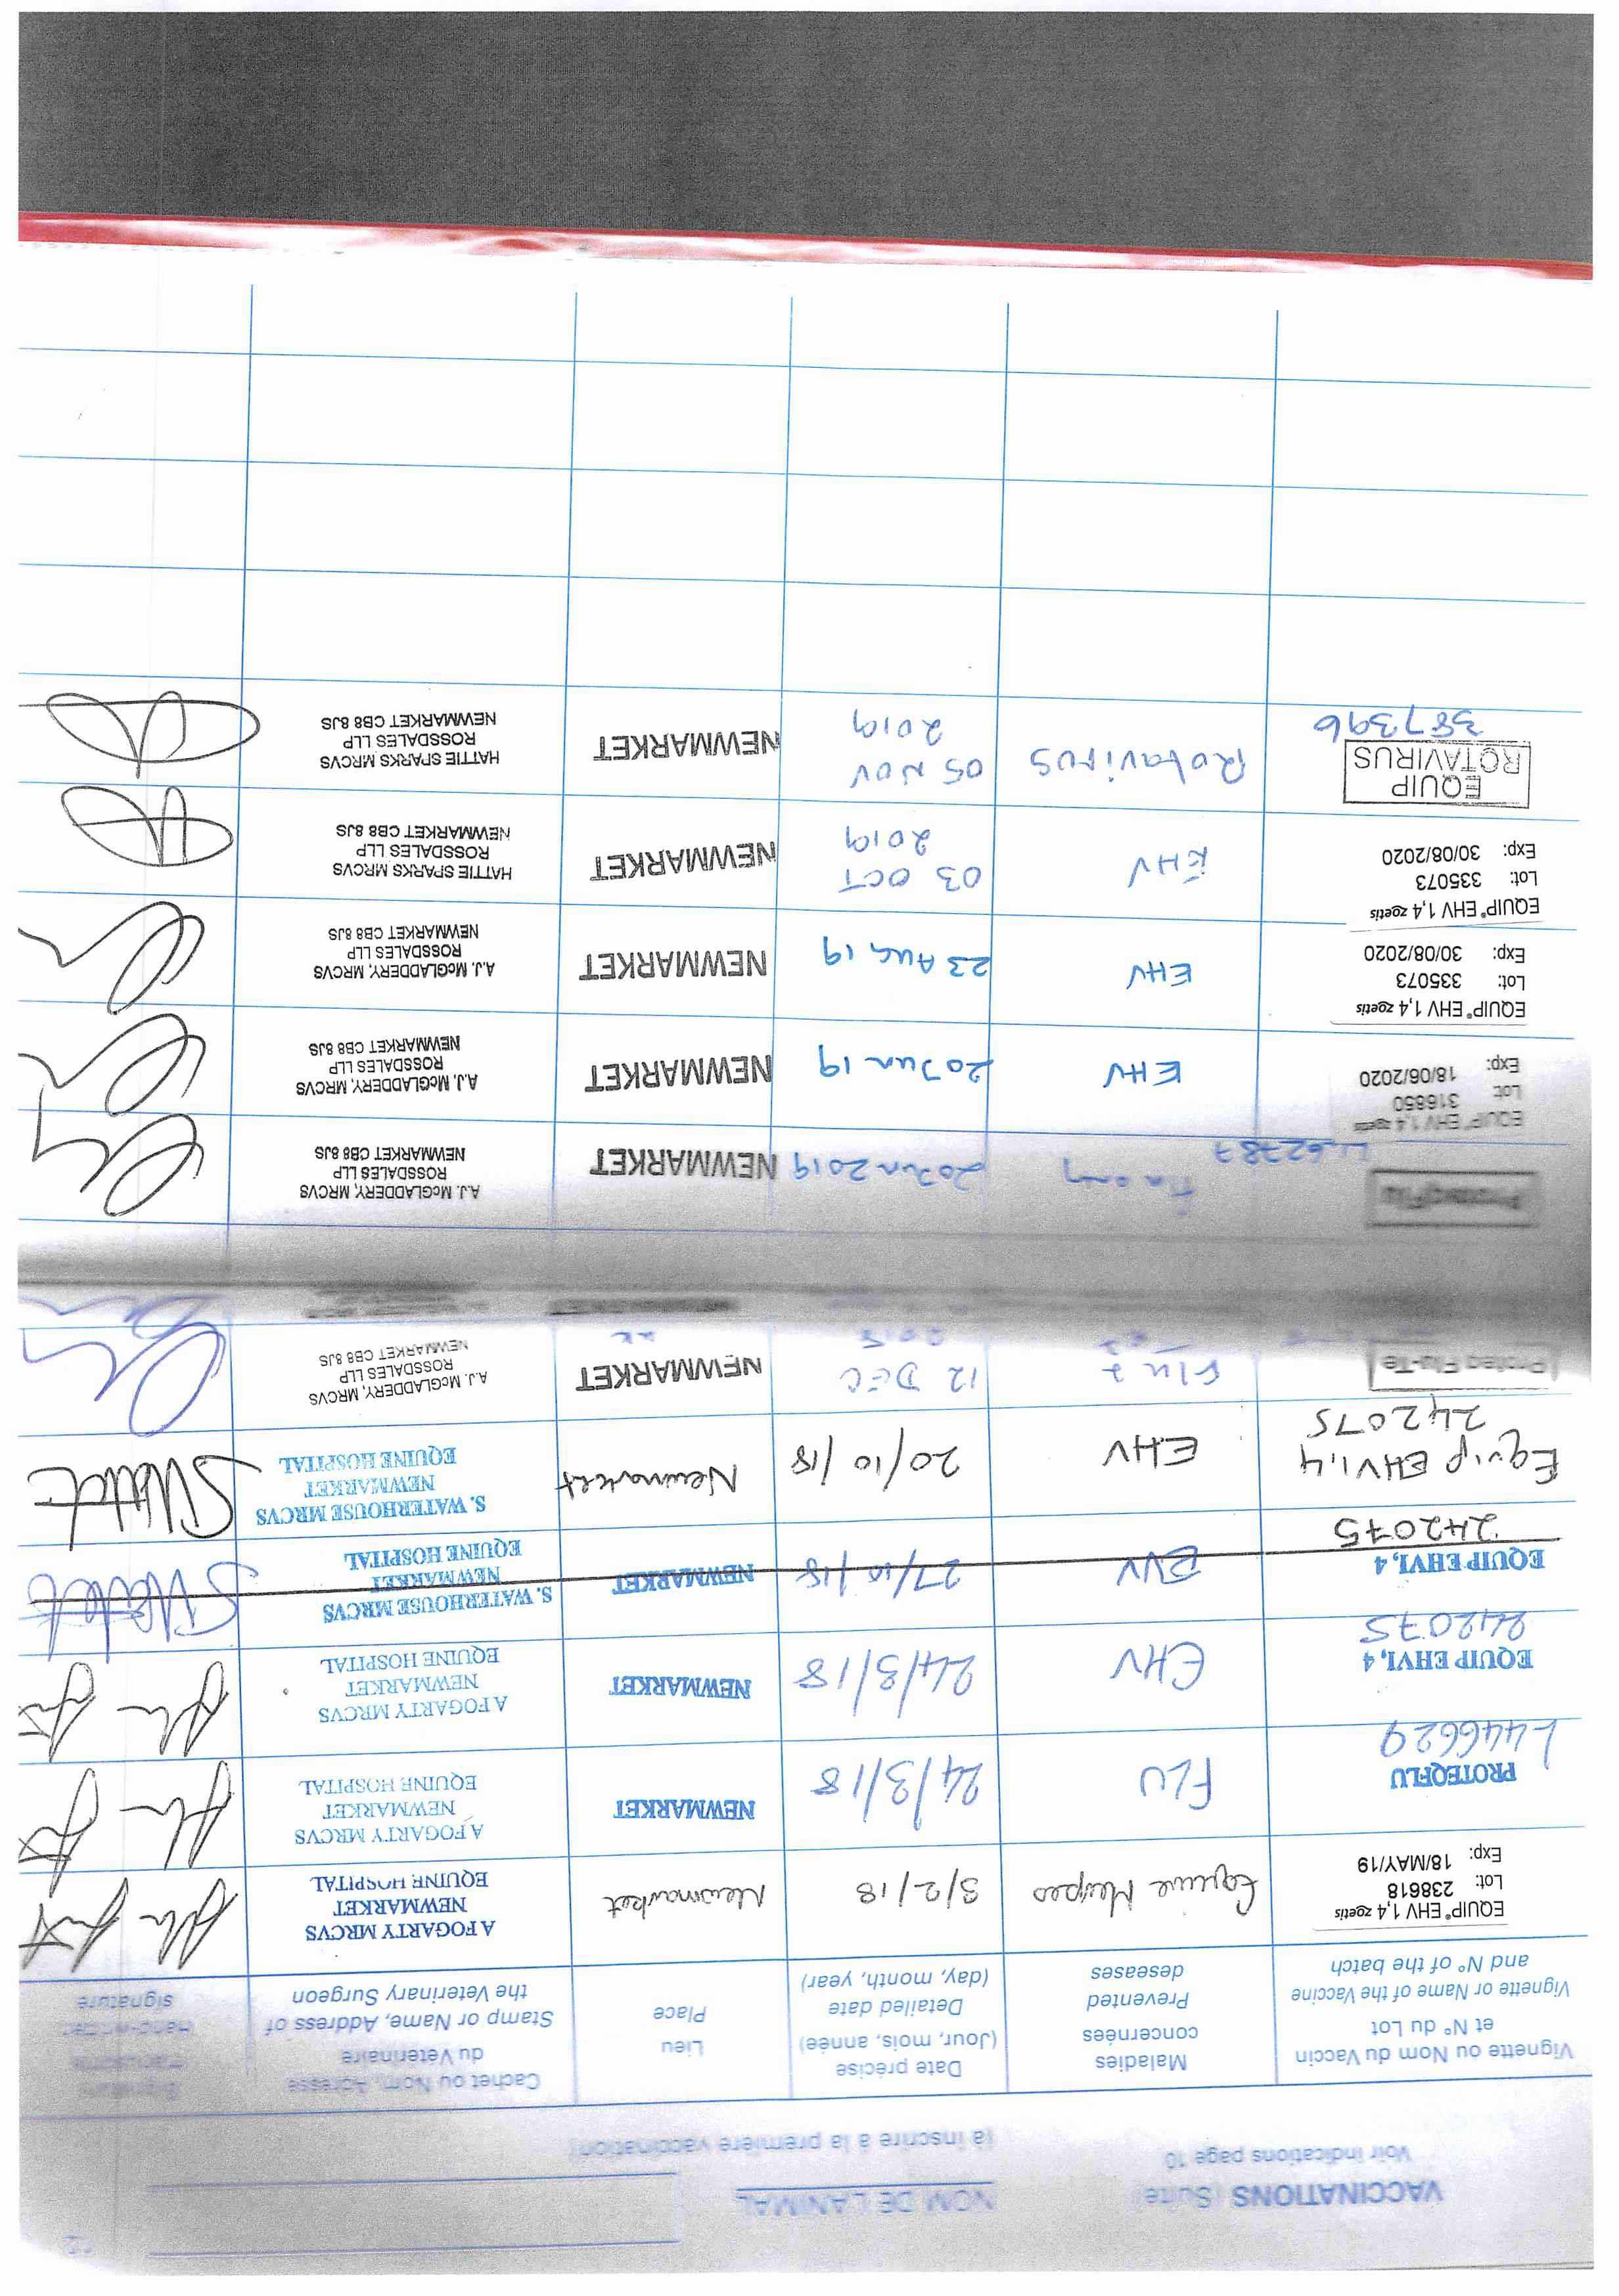 VACCINATIONS (Suite)
Voir indications page 10
NOM DE L'ANIMAL
(à inscrire à la première vaccination)
12
Vignette ou Nom du Vaccin
et N° du Lot
Vignette or Name of the Vaccine
and N° of the batch
Maladies
concernées
Prevented
deseases
Date précise
(Jour, mois, année)
Detailed date
(day, month, year)
Lieu
Place
Cachet ou Nom, Adresse
du Vétérinaire
Stamp or Name, Address of
the Veterinary Surgeon
Signature
manuscrite
Hand-written
signature
EQUIP® EHV 1,4 zoetis
Lot: 238618
Exp: 18/MAY/19
Equine Herpes
3/2/18
Newmarket
A FOGARTY MRCVS
NEWMARKET
EQUINE HOSPITAL
PROTEQFLU
L446629
FLU
24/3/18
NEWMARKET
A FOGARTY MRCVS
NEWMARKET
EQUINE HOSPITAL
EQUIP EHV1,4
242075
EHV
24/3/18
NEWMARKET
A FOGARTY MRCVS
NEWMARKET
EQUINE HOSPITAL
EQUIP EHV1,4
242075
EHV
27/10/18
NEWMARKET
S. WATERHOUSE MRCVS
NEWMARKET
EQUINE HOSPITAL
Equip EHV1,4
242075
EHV
20/10/18
Newmarket
S. WATERHOUSE MRCVS
NEWMARKET
EQUINE HOSPITAL
Proteq Flu-Te
Flu +
12 DEC
2018
NEWMARKET
A.J. McGLADDERY, MRCVS
ROSSDALES LLP
NEWMARKET CB8 8JS
ProteqFlu
L462787
Flu only
20 Jun 2019
NEWMARKET
A.J. McGLADDERY, MRCVS
ROSSDALES LLP
NEWMARKET CB8 8JS
EQUIP® EHV 1,4 zoetis
Lot: 316850
Exp: 18/06/2020
EHV
20 Jun 19
NEWMARKET
A.J. McGLADDERY, MRCVS
ROSSDALES LLP
NEWMARKET CB8 8JS
EQUIP® EHV 1,4 zoetis
Lot: 335073
Exp: 30/08/2020
EHV
23 Aug 19
NEWMARKET
A.J. McGLADDERY, MRCVS
ROSSDALES LLP
NEWMARKET CB8 8JS
EQUIP® EHV 1,4 zoetis
Lot: 335073
Exp: 30/08/2020
EHV
03 OCT
2019
NEWMARKET
HATTIE SPARKS MRCVS
ROSSDALES LLP
NEWMARKET CB8 8JS
EQUIP
ROTAVIRUS
387396
Rotavirus
05 NOV
2019
NEWMARKET
HATTIE SPARKS MRCVS
ROSSDALES LLP
NEWMARKET CB8 8JS